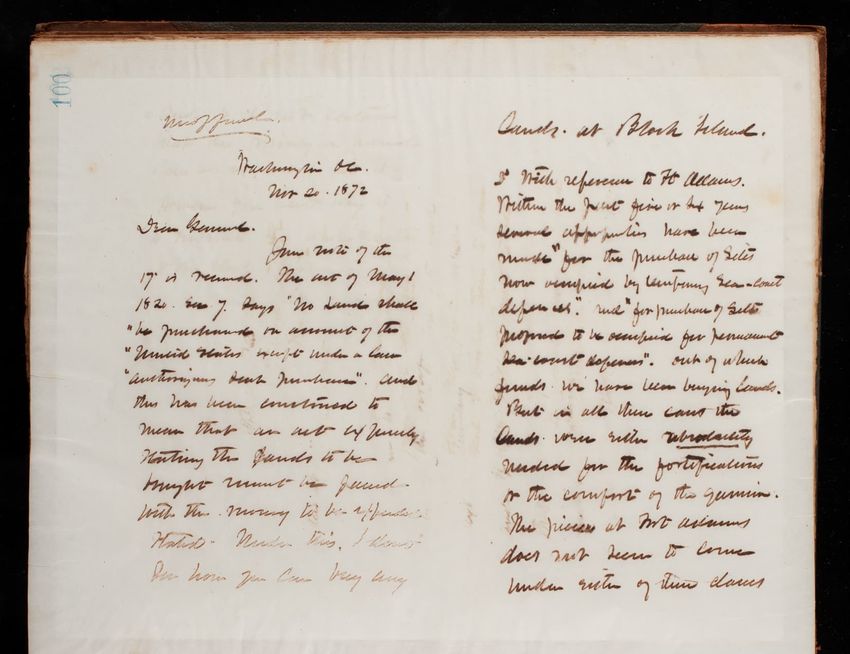 100
Unofficial.
Washington DC.
Nov 20. 1872
Dear General.
Your note of the
17 is received. The act of May 1
1820. sec 7. says "No Land shall
"be purchased on account of the
"United States except under a law
"authorizing such purchase". and
this has been construed to
mean that an act expressly
stating the Lands to be
bought must be passed
with the money to be appro
stated. Under this, I dont
see how you can buy any
Lands. at Block Island.
With reference to Ft Adams.
Within the past five or six years
several appropriations have been
made "for the purchase of Sites
now occupied by temporary Sea-coast
defences". and "for purchase of Sites
proposed to be occupied for permanent
Sea-coast defences". out of which
funds we have been buying Lands.
But in all these cases the
Lands were either absolutely
needed for the fortifications
or the comfort of the Garrison.
The piece at Fort Adams
does not seem to come
under either of these classes